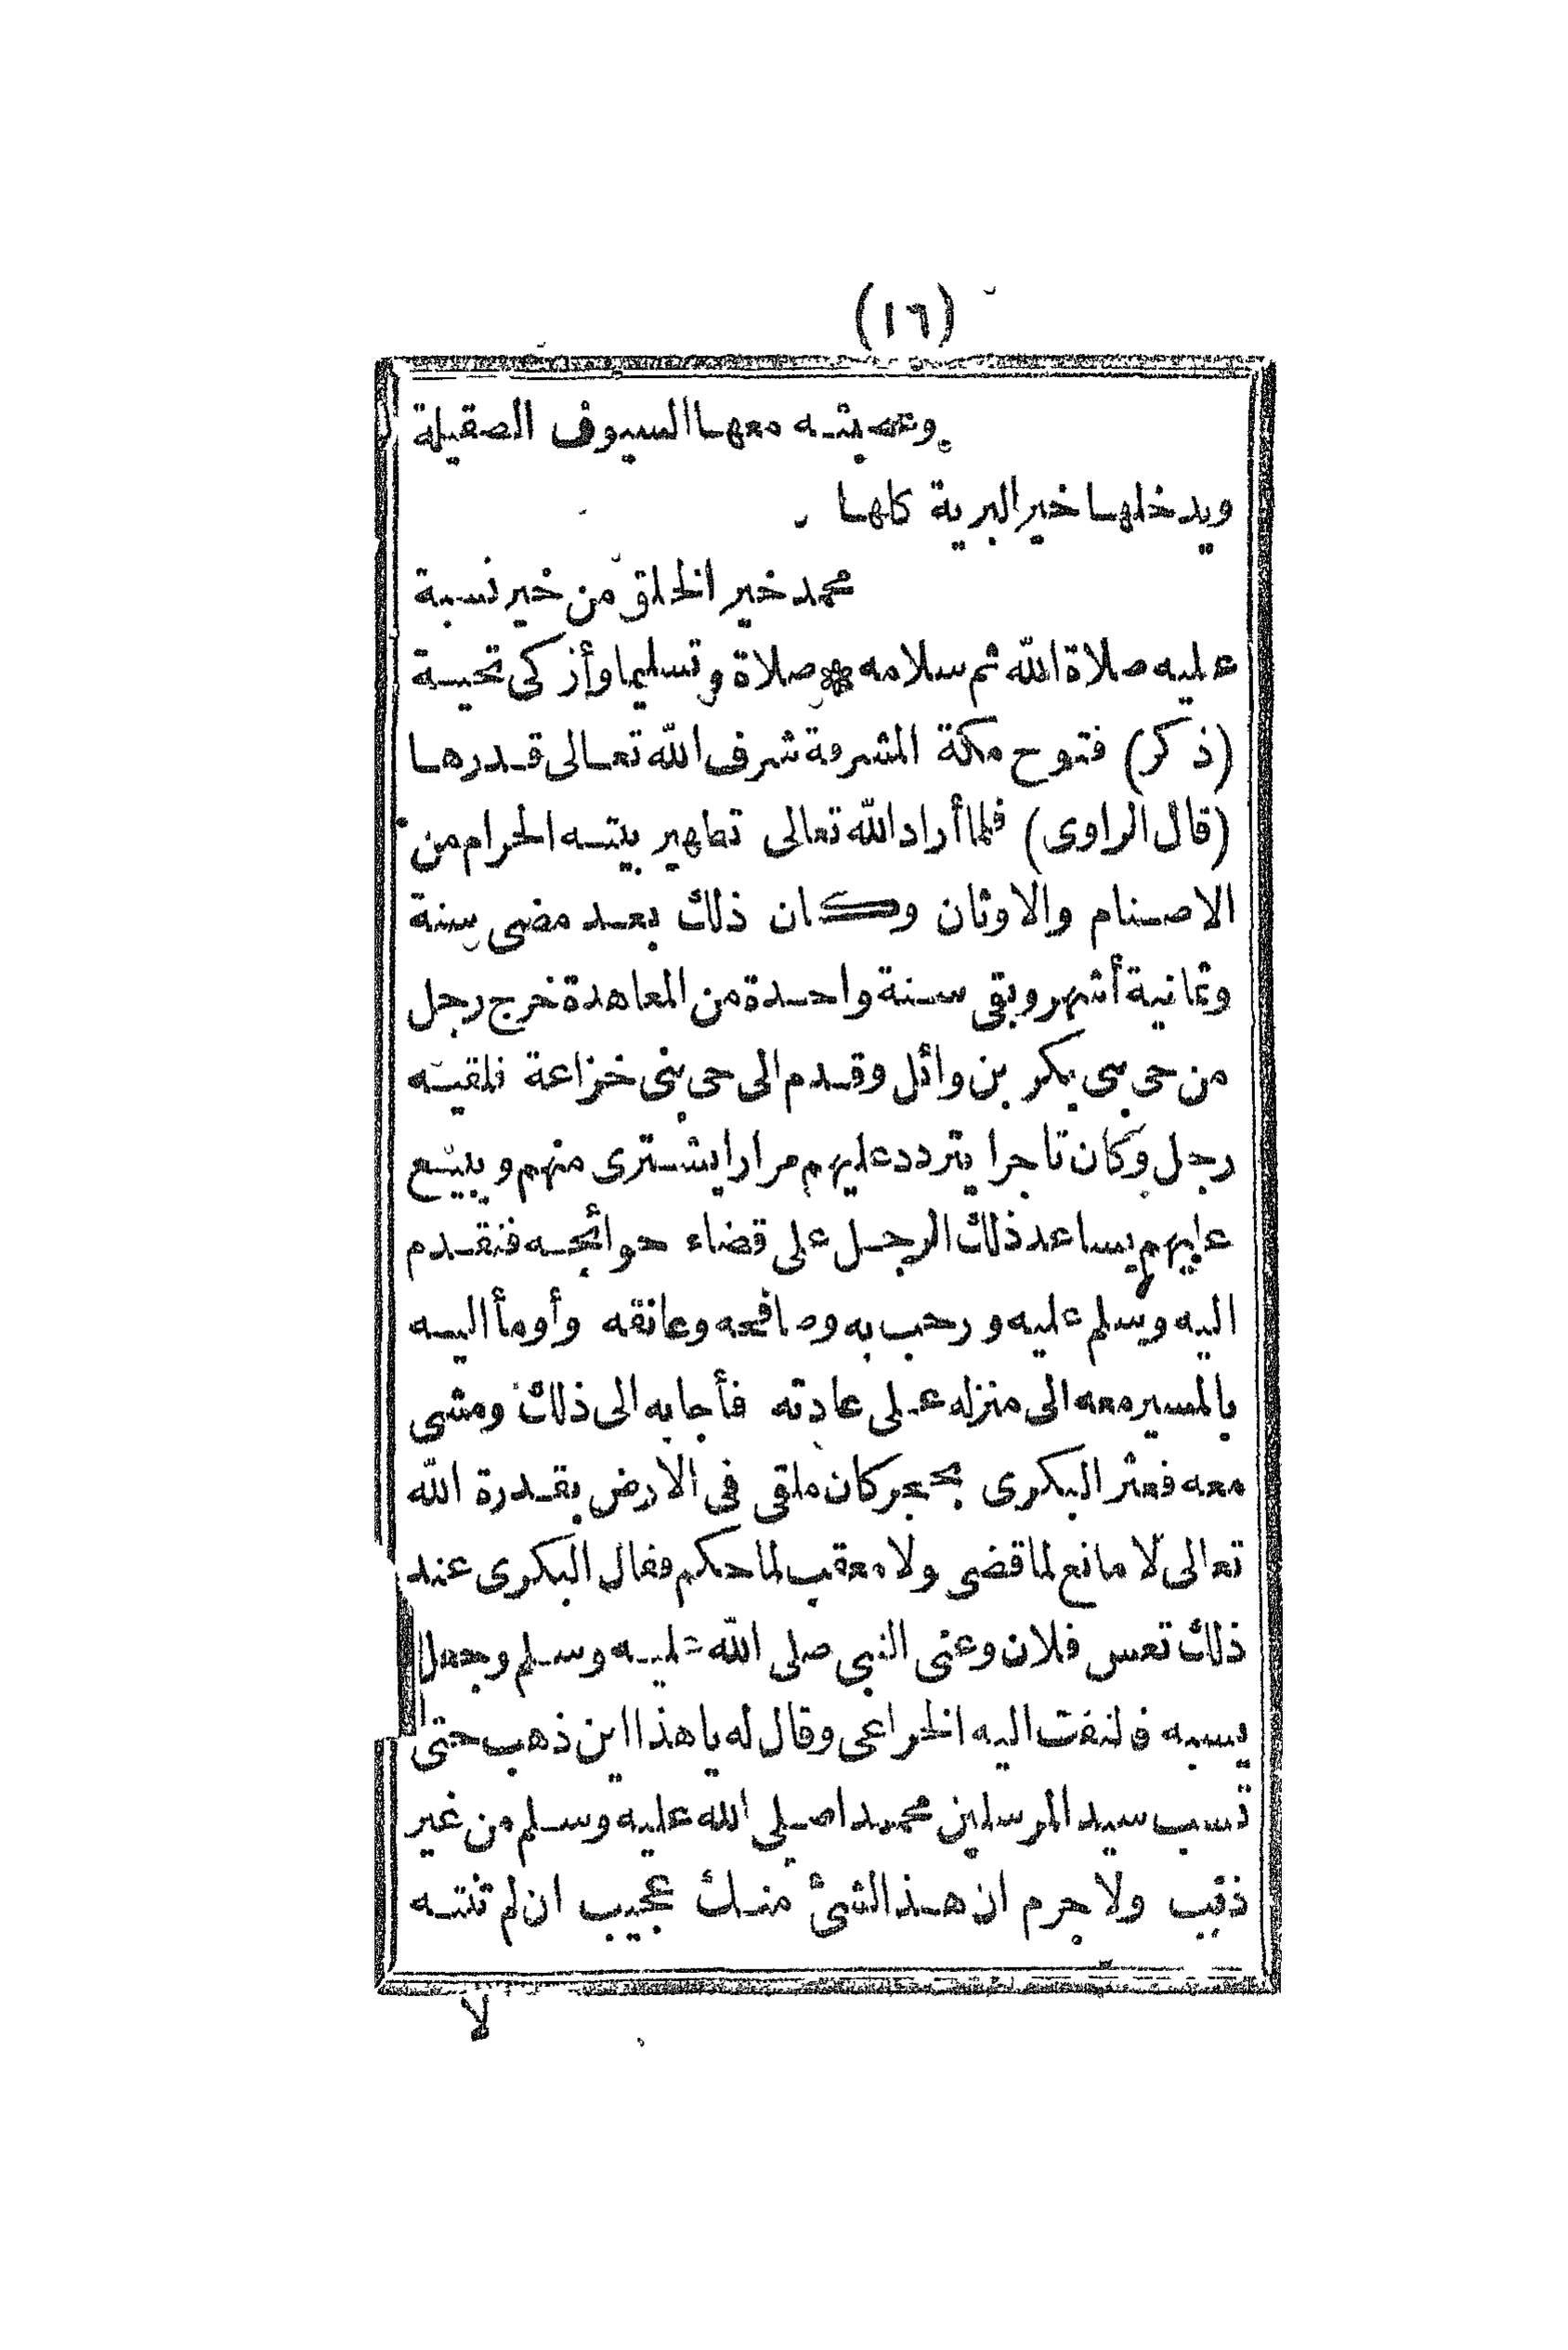 (١٦)
وعصبته معها السيوف الصقيلة
ويدخلها خير البرية كلها
محمد خير الخلق من خير نسبة
عليه صلاة الله ثم سلامه * صلاة وتسليما وأزكى تحية
(ذكر) فتوح مكة المشرفة شرف الله تعالى قدرها
(قال الراوى) فلما أراد الله تعالى تطهير بيته الحرام من
الاصنام والاوثان وكان ذلك بعد مضى سنة
وثمانية أشهر وبقى سنة واحدة من المعاهدة خرج رجل
من حى بنى بكر بن وائل وقدم الى حى بنى خزاعة فلقيه
رجل وكان تاجرا يتردد عليهم مرارا يشترى منهم ويبيع
عليهم يساعد ذلك الرجل على قضاء حوائجه فتقدم
اليه وسلم عليه ورحب به وصافحه وعانقه وأومأ اليه
بالمسير معه الى منزله على عادته فأجابه الى ذلك ومشى
معه فعثر البكرى بحجر كان ملقى فى الارض بقدرة الله
تعالى لا مانع لما قضى ولا معقب لما حكم فقال البكرى عند
ذلك تعس فلان وعنى النبى صلى الله عليه وسلم وجعل
يسبه فالتفت اليه الخزاعى وقال له يا هذا اين ذهب حتى
تسب سيد المرسلين محمدا صلى الله عليه وسلم من غير
ذنب ولا جرم ان هذا الشئ منك عجيب ان لم تنته
لا